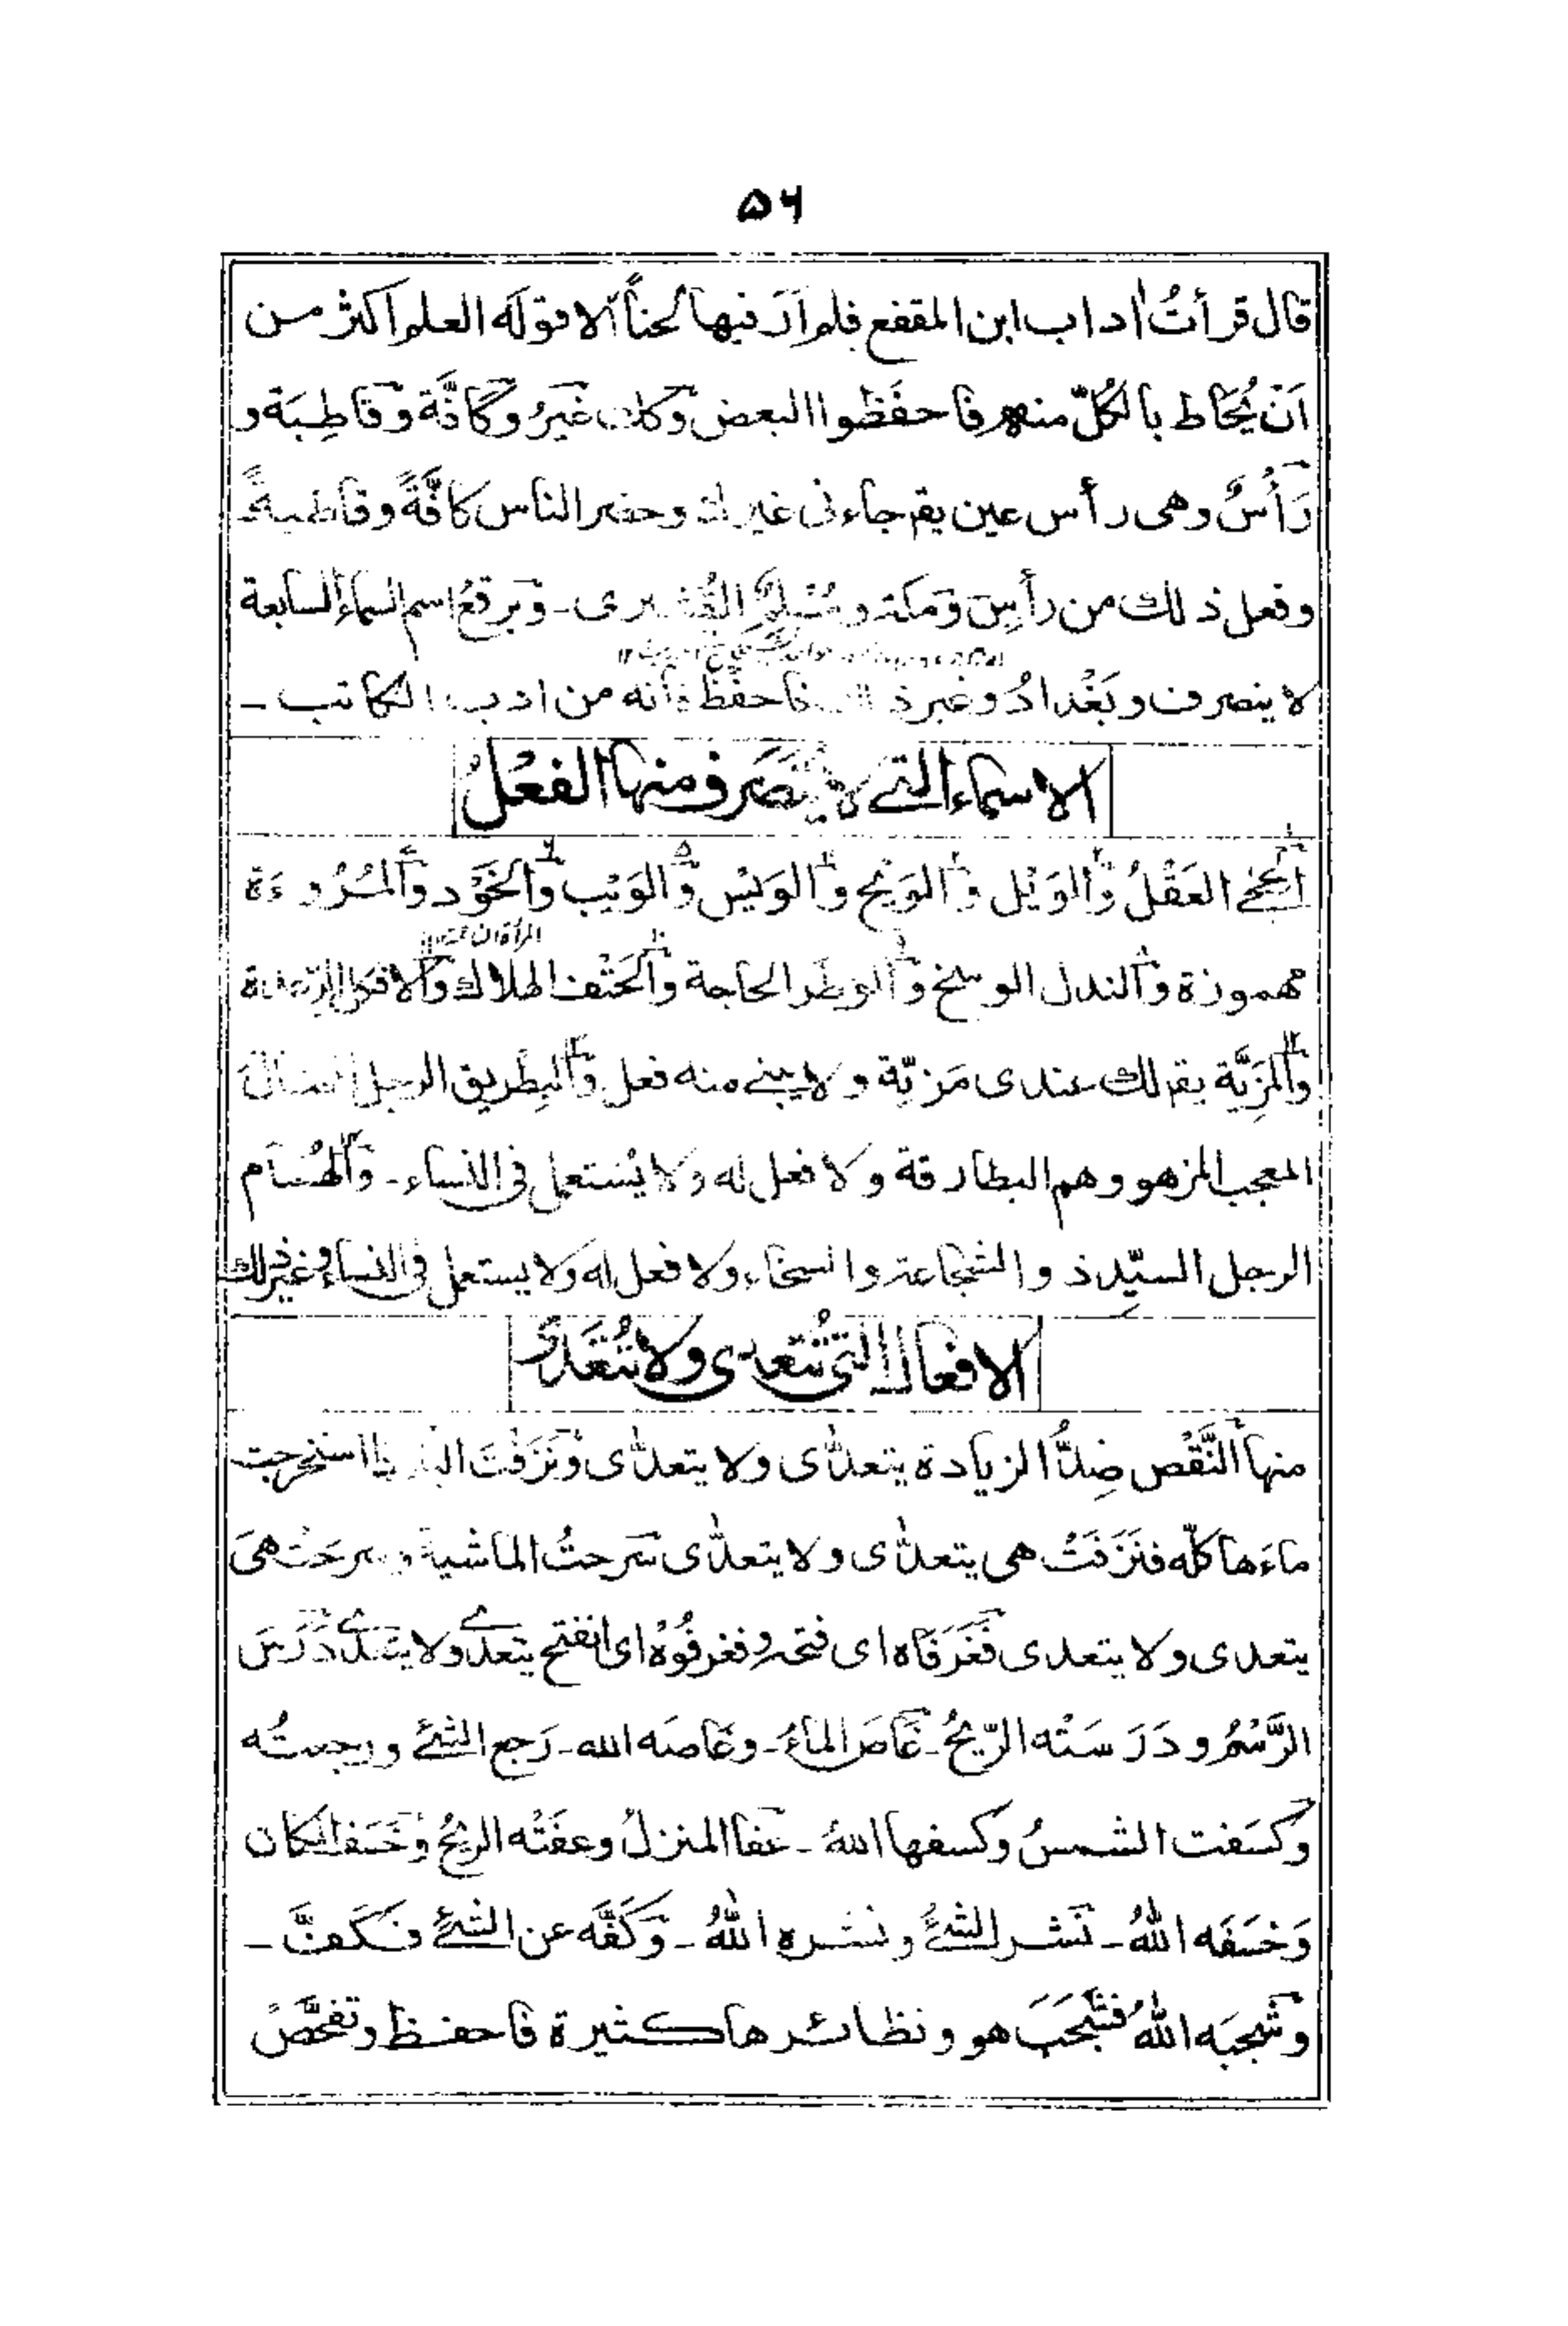 ۵۶
قال قرأتُ اداب ابن المقفع فلم اَرَ فيها لحناً الا قوله العلم اكثر من
اَنْ يُحَاط بالكُلِّ منه فاحفَظوا البعض وكذا غَيْرُ وكَافَّة وقَاطِبَة و
رَأْسٌ وهى رأس عين يقم جاءنى غيرك وحضر الناس كافَّةً وقاطبةً
وفعل ذلك من رأسٍ ومكة و القُشيرى ـ وبرقعُ اسم السماء السابعة
لا ينصرف وبَغْدادُ وغير ذلك فاحفَظْ فانه من ادب الكاتب ـ
الاسماء التے لا يتصَرف منها الفعْلُ
العَقْلُ والوَيْل والوَيْح والوَيْس والوَيْب والخَوْد والمُرُوءَة
مهموزة والندل الوسخ والوطَر الحاجة والحَتْف الهلاك والافكل الرعدة
المرأة
والمَزِيَّة يقم لك عندى مَزِيّة ولا يبنے منه فعل والبِطْرِيق الرجل
المعجب المزهو وهم البطارقة ولا فعل له ولا يُستعمل فى النساء ـ والهُمَام
الرجل السيّد ذو الشجاعة والسخاء ولا فعل له ولا يستعمل فى النساء وغير ذلك
الافعال التى تُتعدى ولا تُتَعَدى
منها النَّقْص ضِدُّ الزيادة يتعدّٰى ولا يتعدّٰى ونَزَفْتَ البئر اذا استخرجت
ماءَها كلّه فنَزَفَتْ هى يتعدّٰى ولا يتعدّٰى سَرحتُ الماشية وسرحَتْ هىَ
يتعدى ولا يتعدى فَغَرَ فَاه اى فتحه وفغر فُوْهُ اى انفتح يتعدّے ولا يتعدّے دَرَسَ
الرَّسْمُ ودَرَسَتْه الرّيْحُ ـ غَاضَ الماءُ ـ وغاضَه الله ـ رَجع الشئ ورجعتُه
وكسَفت الشمسُ وكسفها اللهُ ـ عَفَا المنزلُ وعفَتْه الريحُ وخَسَفَ المكان
وَخسَفَه اللهُ ـ نَشر الشئُ ونشره اللهُ ـ وَكَفَّه عن الشئ فكَفَّ ـ
وشجبَه اللهُ فشَجَبَ هو ونظائرها كثيرة فاحفظ وتفحَّصْ